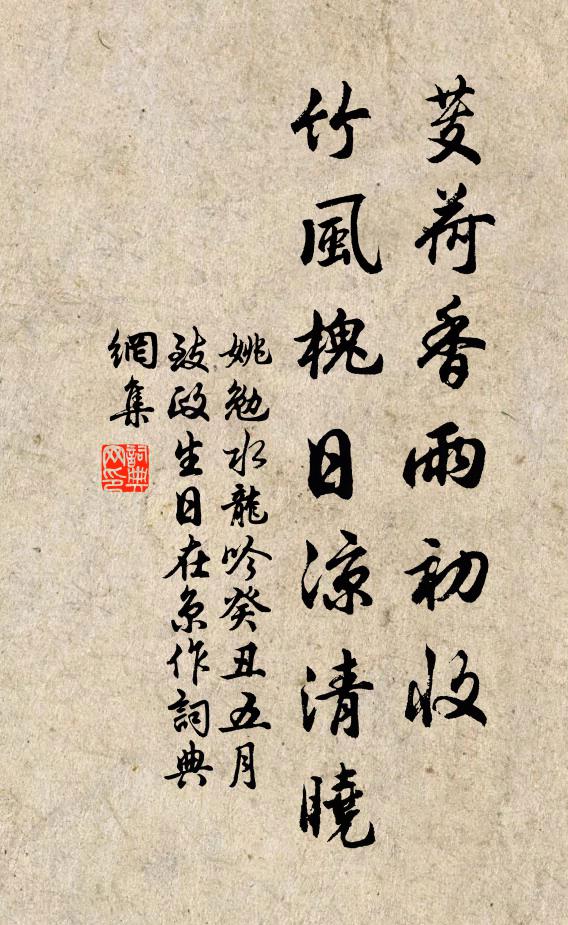 芰荷香雨初收
竹風槐日涼清曉
姚勉水龍吟癸丑五月
致政生日在京作詞典
網集
詞典
网印